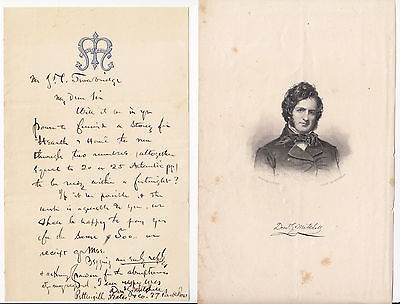 Mr J. T. Trowbridge
My Dear Sir
Will it be in yr
power to furnish a Story for
Hearth & Home to run
through two numbers, (altogether
equal to 20 or 25 Atlantic pp)
to be ready within a fortnight?
If it be possible & the
work is agreeable to you, we
shall be happy to pay you
for the same $ 500. on
receipt of Mss.
Begging an early reply
& asking pardon for the abruptness
of my request, I am respy yrs
Don G Mitchell
Pettengill, Bates & Co. 37 Park Row
Don G Mitchell